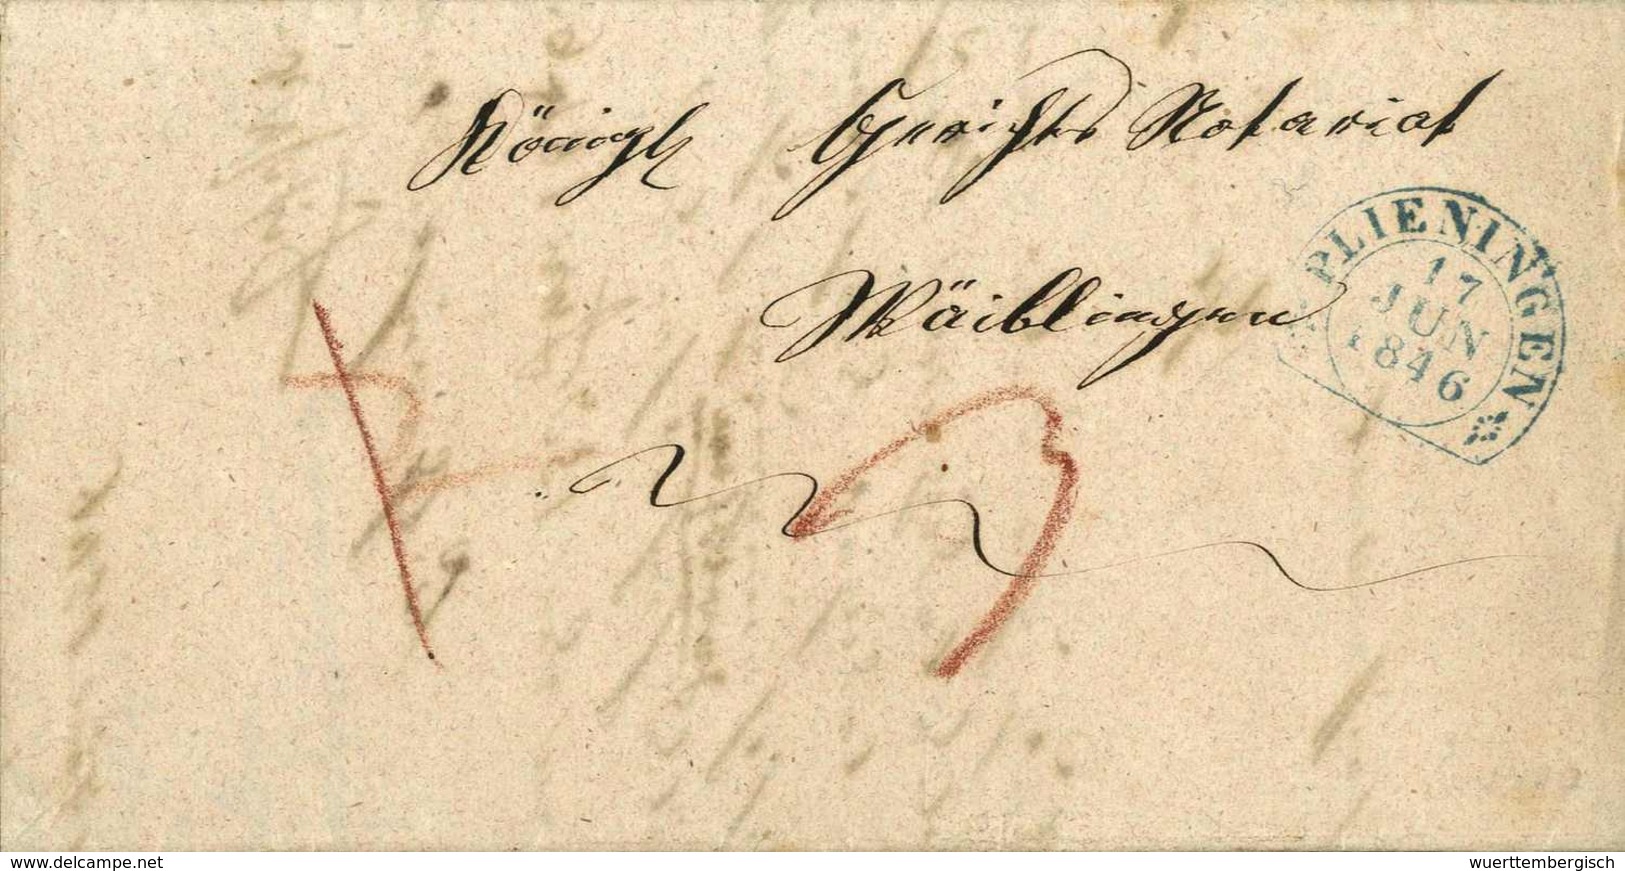 Königl. Gerichts Notariat
Wäiblingen
PLIENINGEN
17
JUN
1846
3
www.delcampe.net
wuerttembergisch